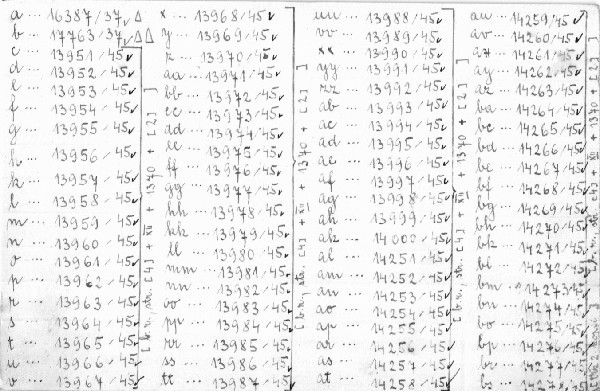 a ... 16387/37 ✓ Δ
b ... 17763/37 ✓ ΔΔ
c ... 13951/45 ✓
d ... 13952/45 ✓
e ... 13953/45 ✓
f ... 13954/45 ✓
g ... 13955/45 ✓
h ... 13956/45 ✓
k ... 13957/45 ✓
l ... 13958/45 ✓
m ... 13959/45 ✓
n ... 13960/45 ✓
o ... 13961/45 ✓
p ... 13962/45 ✓
r ... 13963/45 ✓
s ... 13964/45 ✓
t ... 13965/45 ✓
u ... 13966/45 ✓
v ... 13967/45 ✓
[b.n., str. [4] + XII + 1370 + [2]]
x ... 13968/45 ✓
y ... 13969/45 ✓
z ... 13970/45 ✓
aa ... 13971/45 ✓
bb ... 13972/45 ✓
cc ... 13973/45 ✓
dd ... 13974/45 ✓
ee ... 13975/45 ✓
ff ... 13976/45 ✓
gg ... 13977/45 ✓
hh ... 13978/45 ✓
kk ... 13979/45 ✓
ll ... 13980/45 ✓
mm ... 13981/45 ✓
nn ... 13982/45 ✓
oo ... 13983/45 ✓
pp ... 13984/45 ✓
rr ... 13985/45 ✓
ss ... 13986/45 ✓
tt ... 13987/45 ✓
[b.n., str. [4] + XII + 1370 + [2]]
uu ... 13988/45 ✓
vv ... 13989/45 ✓
xx ... 13990/45 ✓
yy ... 13991/45 ✓
zz ... 13992/45 ✓
ab ... 13993/45 ✓
ac ... 13994/45 ✓
ad ... 13995/45 ✓
ae ... 13996/45 ✓
af ... 13997/45 ✓
ag ... 13998/45 ✓
ah ... 13999/45 ✓
ak ... 14000/45 ✓
al ... 14251/45 ✓
am ... 14252/45 ✓
an ... 14253/45 ✓
ao ... 14254/45 ✓
ap ... 14255/45 ✓
ar ... 14256/45 ✓
as ... 14257/45 ✓
at ... 14258/45 ✓
[b.n., str. [4] + XII + 1370 + [2]]
au ... 14259/45 ✓
av ... 14260/45 ✓
ax ... 14261/45 ✓
ay ... 14262/45 ✓
az ... 14263/45 ✓
ba ... 14264/45 ✓
bc ... 14265/45 ✓
bd ... 14266/45 ✓
be ... 14267/45 ✓
bf ... 14268/45 ✓
bg ... 14269/45 ✓
bh ... 14270/45 ✓
bk ... 14271/45 ✓
bl ... 14272/45 ✓
bm ... 14273/45 ✓
bn ... 14274/45 ✓
bo ... 14275/45 ✓
bp ... 14276/45 ✓
br ... 14277/45 ✓
[4] + XII + 1370 + [2]]